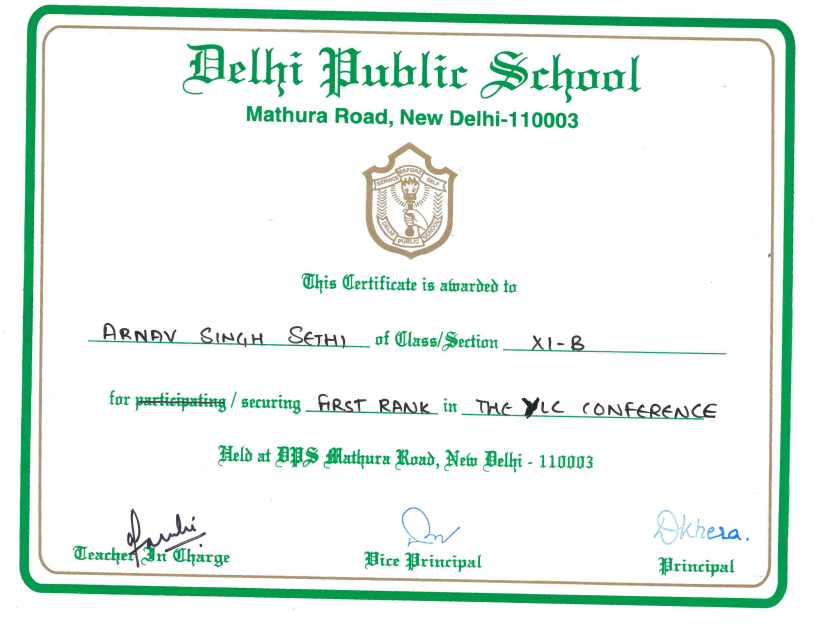 Delhi Public School
Mathura Road, New Delhi-110003
SERVICE BEFORE SELF
DELHI PUBLIC SCHOOL
This Certificate is awarded to
ARNAV SINGH SETHI of Class/Section XI-B
for participating / securing FIRST RANK in THE YLC CONFERENCE
Held at DPS Mathura Road, New Delhi - 110003
Dkhera.
Teacher In Charge Vice Principal Principal